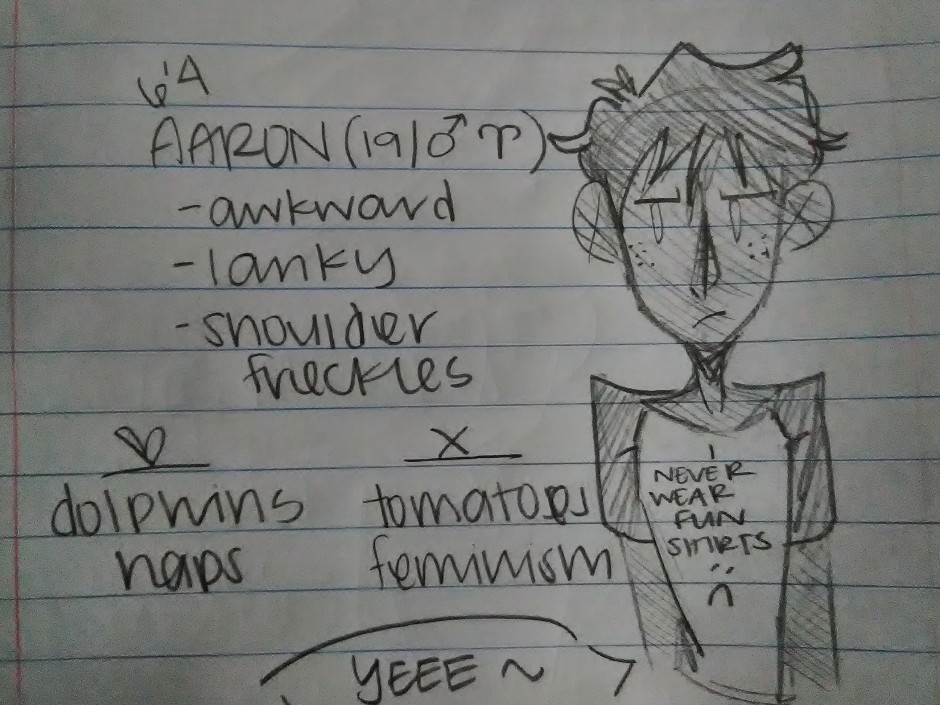 6'4
AARON (19/♂ ♈)
-awkward
-lanky
-shoulder
freckles
♡ X
dolphins tomatoes
naps feminism
I
NEVER
WEAR
FUN
SHIRTS
:(
YEEE ~